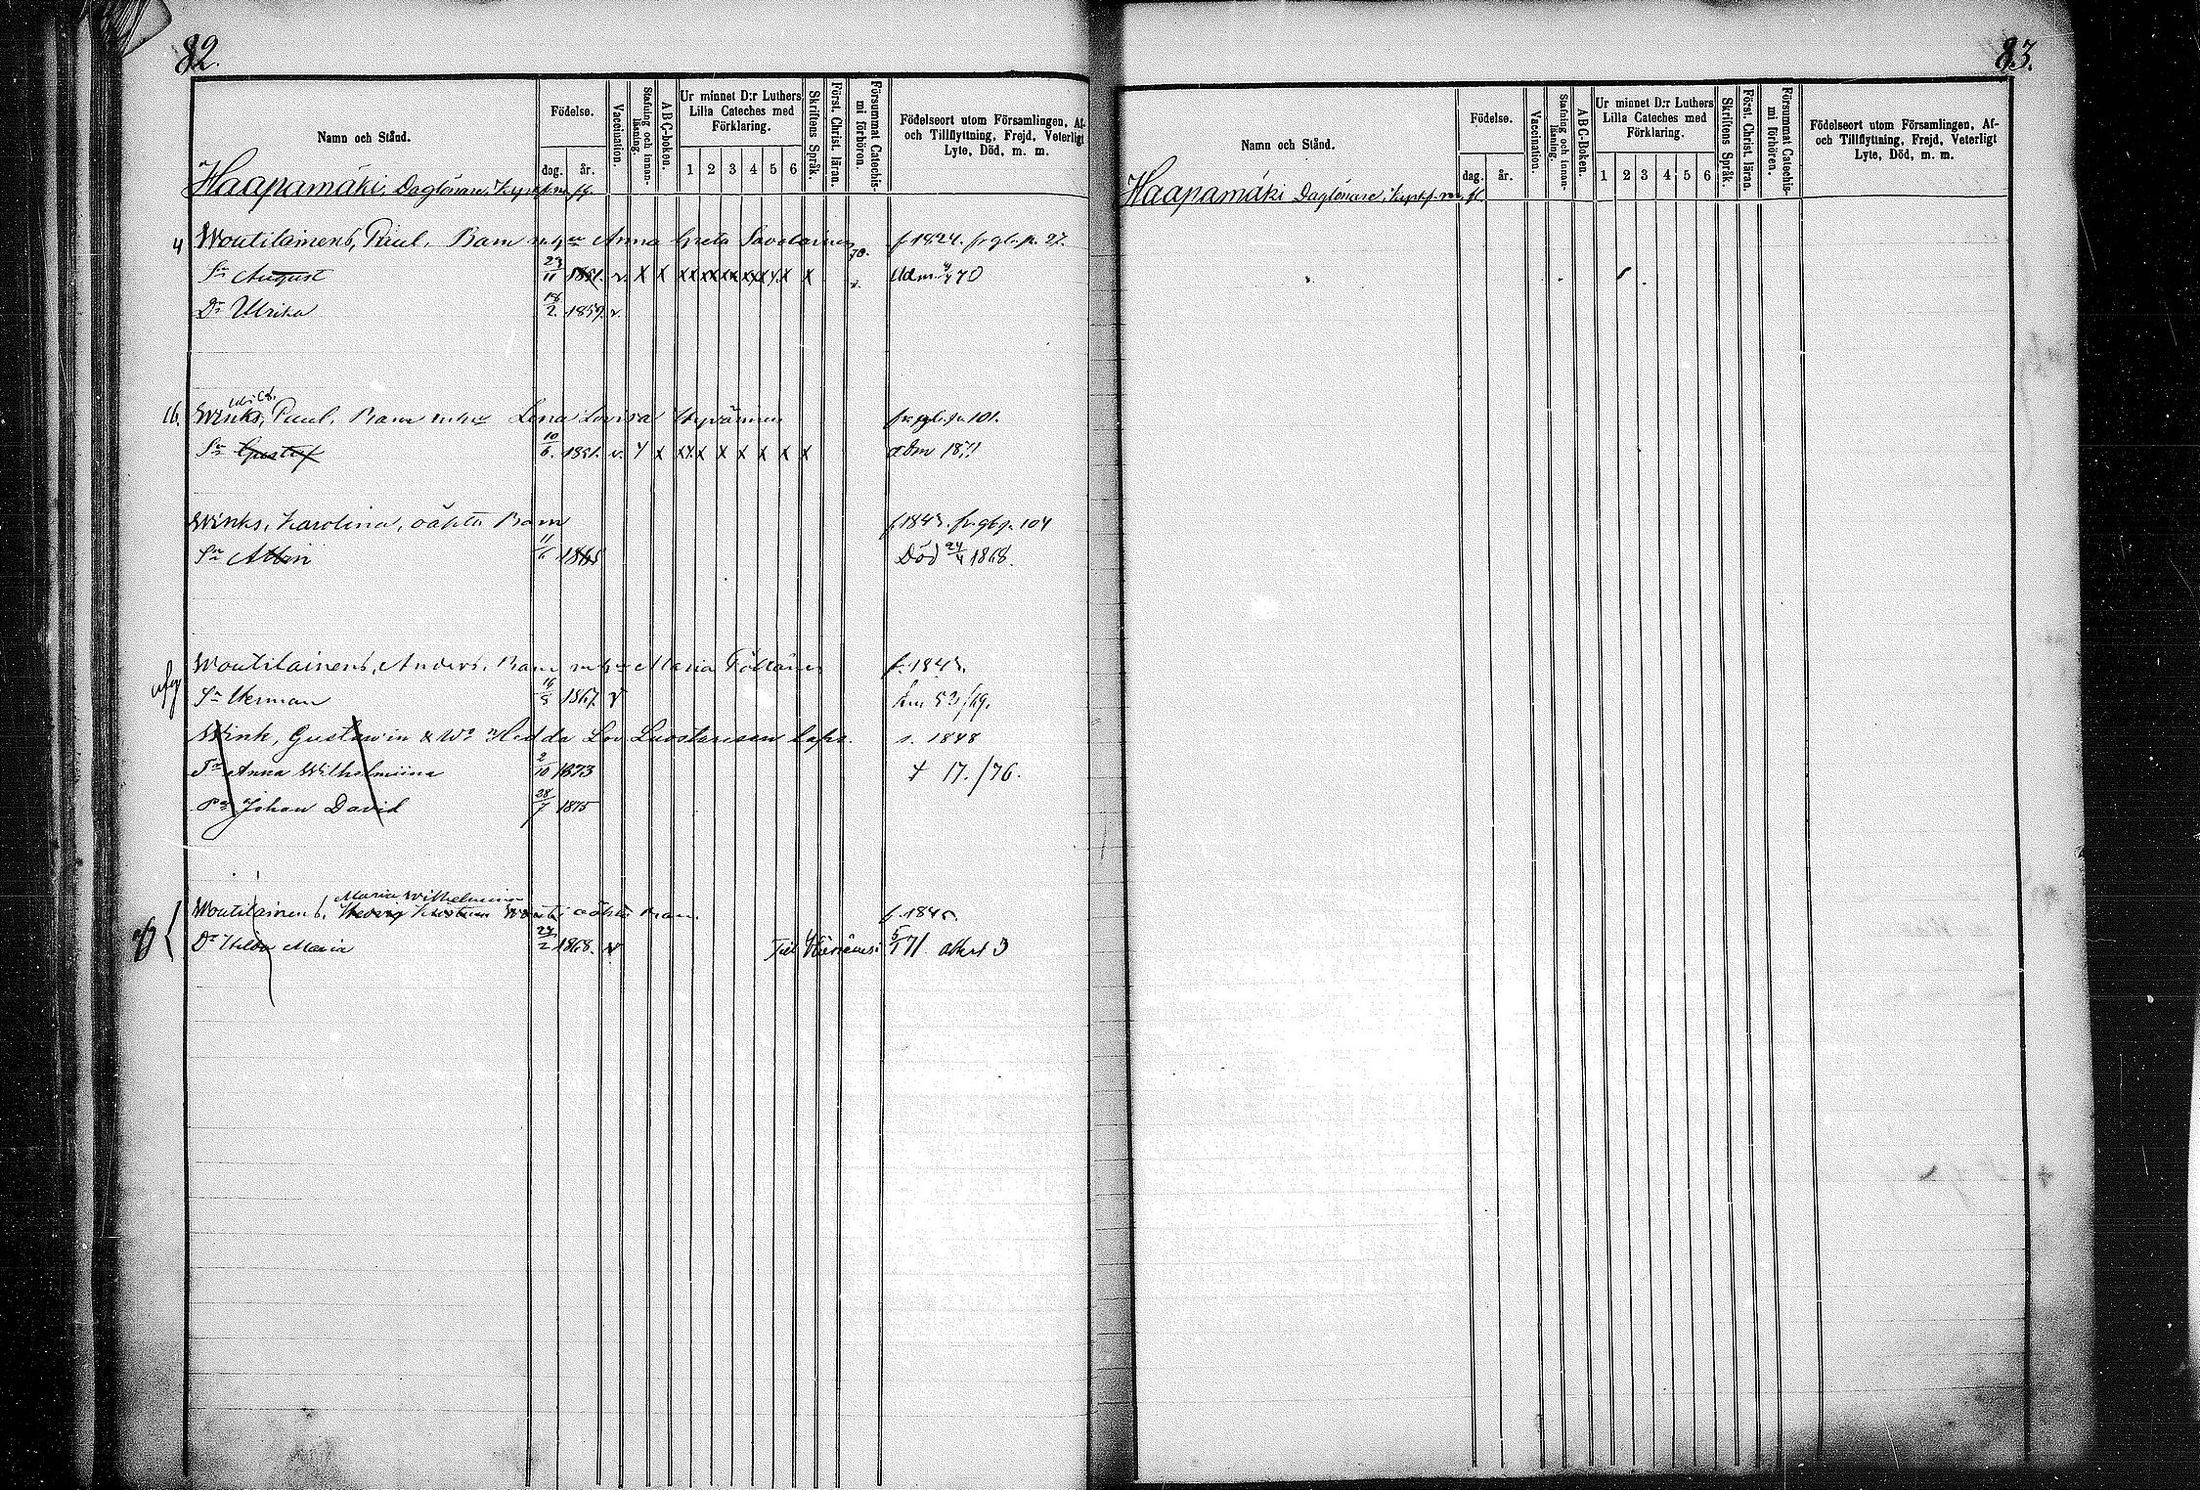 82.
Namn och Stånd.
Födelse.
dag.
år.
Vaccination.
Stafning och innan-läsning.
ABC-boken.
Ur minnet D:r Luthers Lilla Cateches med Förklaring.
1 2 3 4 5 6
Skriftens Språk.
Först. Christ. läran.
Försummat Catechis-mi förhören.
Födelseort utom Församlingen, Af-
och Tillflyttning, Frejd, Veterligt
Lyte, Död, m. m.
Haapamäki, Daglönare,
4 Woutilainens, Paul, Barn m. h. Anna Greta Savolainen f. 1824.
Sn August 23/11 1851. v. X X X X X X X X X 70
Dr Ulrika 18/2. 1859. v.
16. Winks, Paul, Barn m. hu Lena Lovisa Hyvärinen 101.
Sn Gustaf 10/6. 1851. v.
Winks, Karolina, oäkta Barn f. 1843. 104
Sn Albin 11/6 1865 Död 24/4 1868.
Woutilainens, Anders, Barn m. hu Maria f. 1843.
Sn Herman 16/5 1867. v 53/69.
Wink, Gustaw in & Wo Hedda Lov. Luostarinen laps. s. 1848
Tr Anna Wilhelmiina 2/10 1873 † 17./76.
Pa Johan David 28/7 1875
Maria Wilhelmina
Woutilainens, oäkta Barn. f. 1845.
Dr Hilda Maria 24/2 1868. v Till 5/1 71. attest 3
83.
Namn och Stånd.
Födelse.
dag.
år.
Vaccination.
Stafning och innan-läsning.
ABC-Boken.
Ur minnet D:r Luthers Lilla Cateches med Förklaring.
1 2 3 4 5 6
Skriftens Språk.
Först. Christ. läran.
Försummat Catechis-mi förhören.
Födelseort utom Församlingen, Af-
och Tillflyttning, Frejd, Veterligt
Lyte, Död, m. m.
Haapamäki Daglönare,